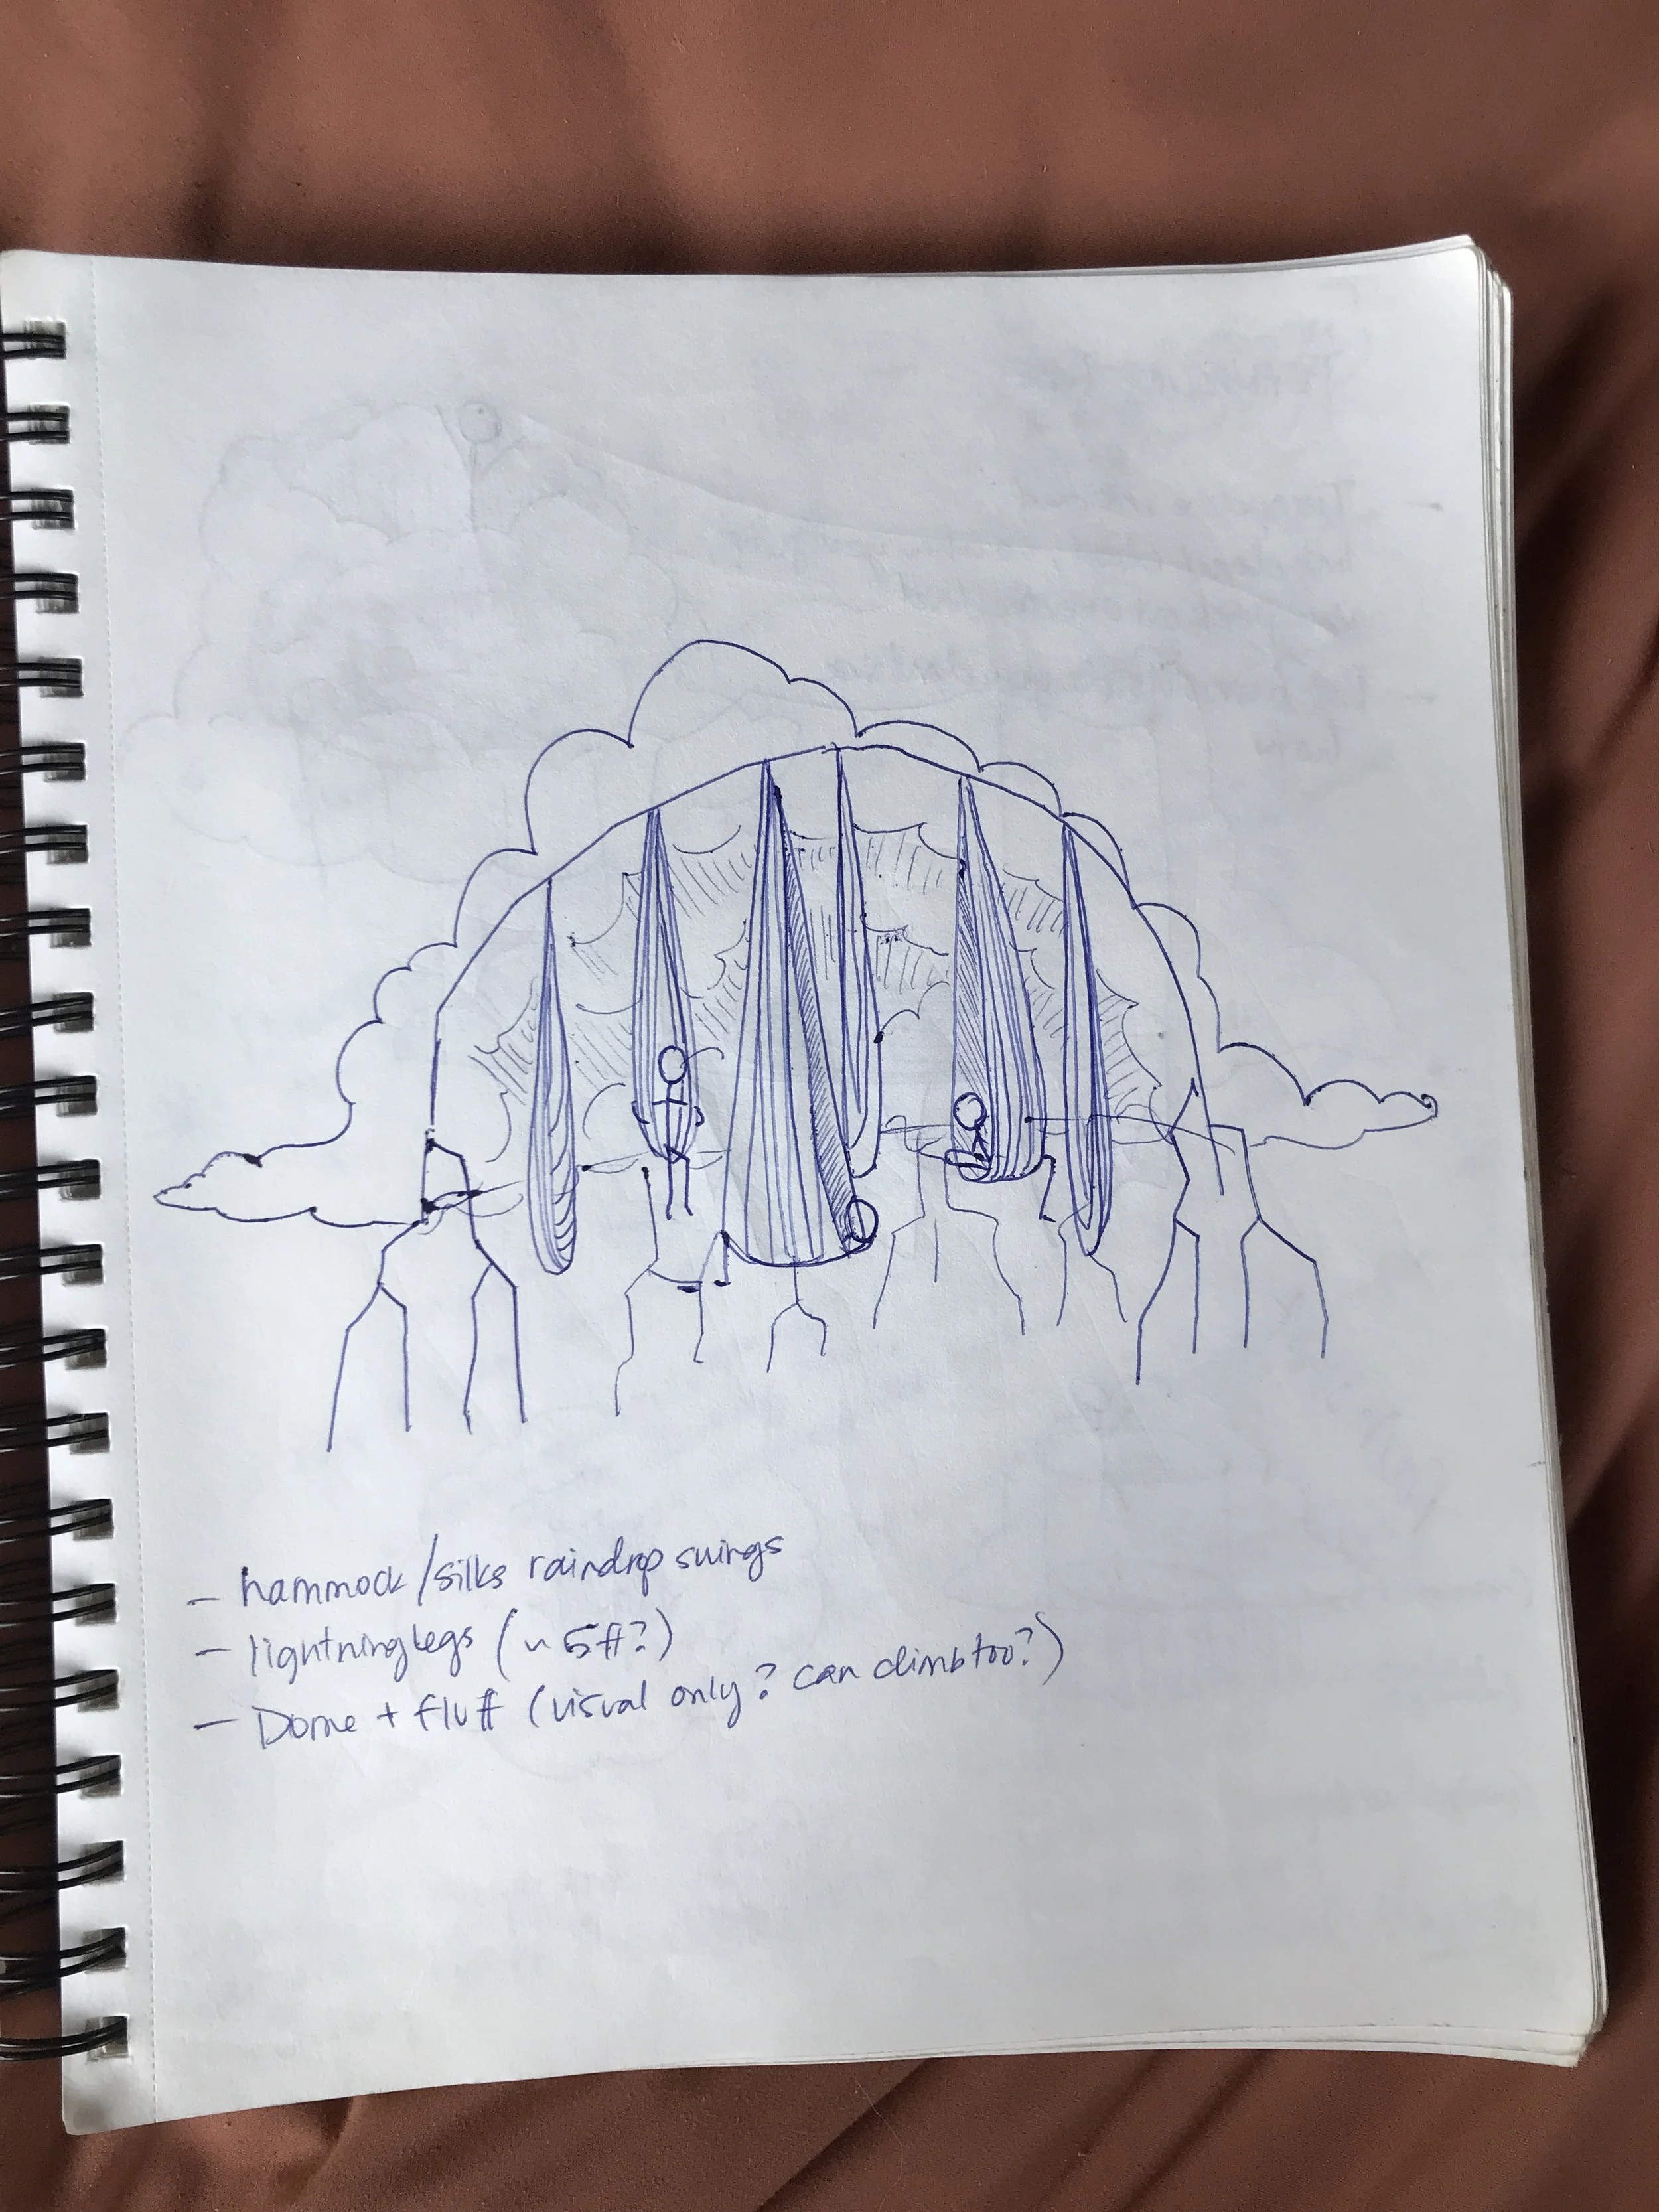 - hammock/silks raindrop swings
- lightning legs (~ 5ft?)
- Dome + fluff (visual only? can climb too?)